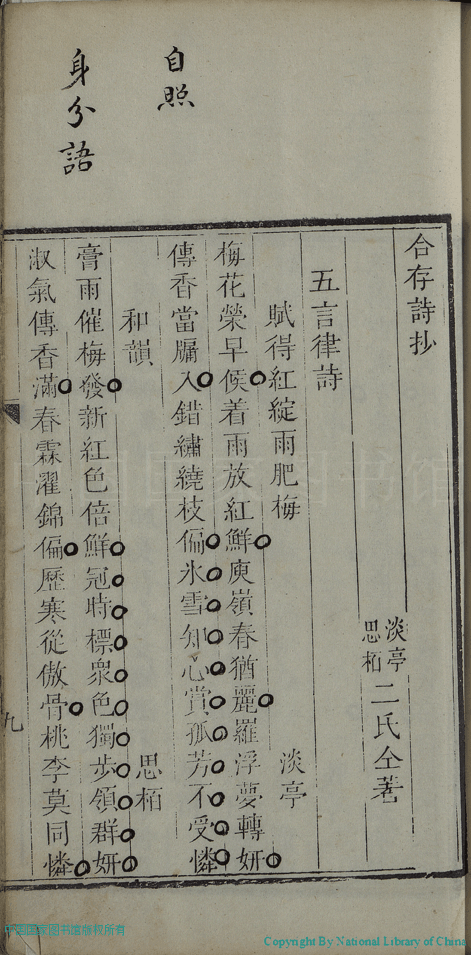 自照
身分語
合存詩抄
淡亭
思栢
二氏仝著
五言律詩
賦得紅綻雨肥梅
淡亭
梅花榮早候着雨放紅鮮庾嶺春猶麗羅浮夢轉妍
傳香當牖入錯繡繞枝偏氷雪知心賞孤芳不受憐
和韻
思栢
膏雨催梅發新紅色倍鮮冠時標衆色獨步領群妍
淑氣傳香滿春霖濯錦偏歷寒從傲骨桃李莫同憐
九
中国国家图书馆版权所有
Copyright By National Library of China